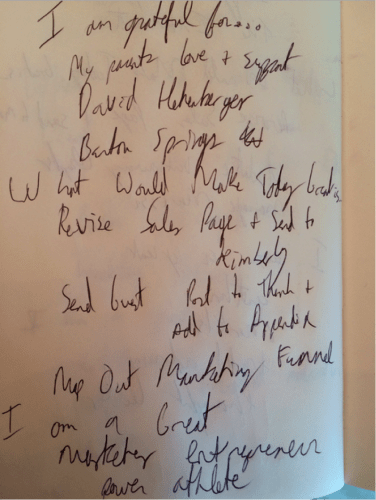 I am grateful for...
My parents love + support
David
Barton Springs
What Would Make Today Great
Revise Sales Page + Send to
Kimberly
Send Guest Post to Thank +
Add to Appendix
Map Out Marketing Funnel
I am a Great
marketer entrepreneur
power athlete